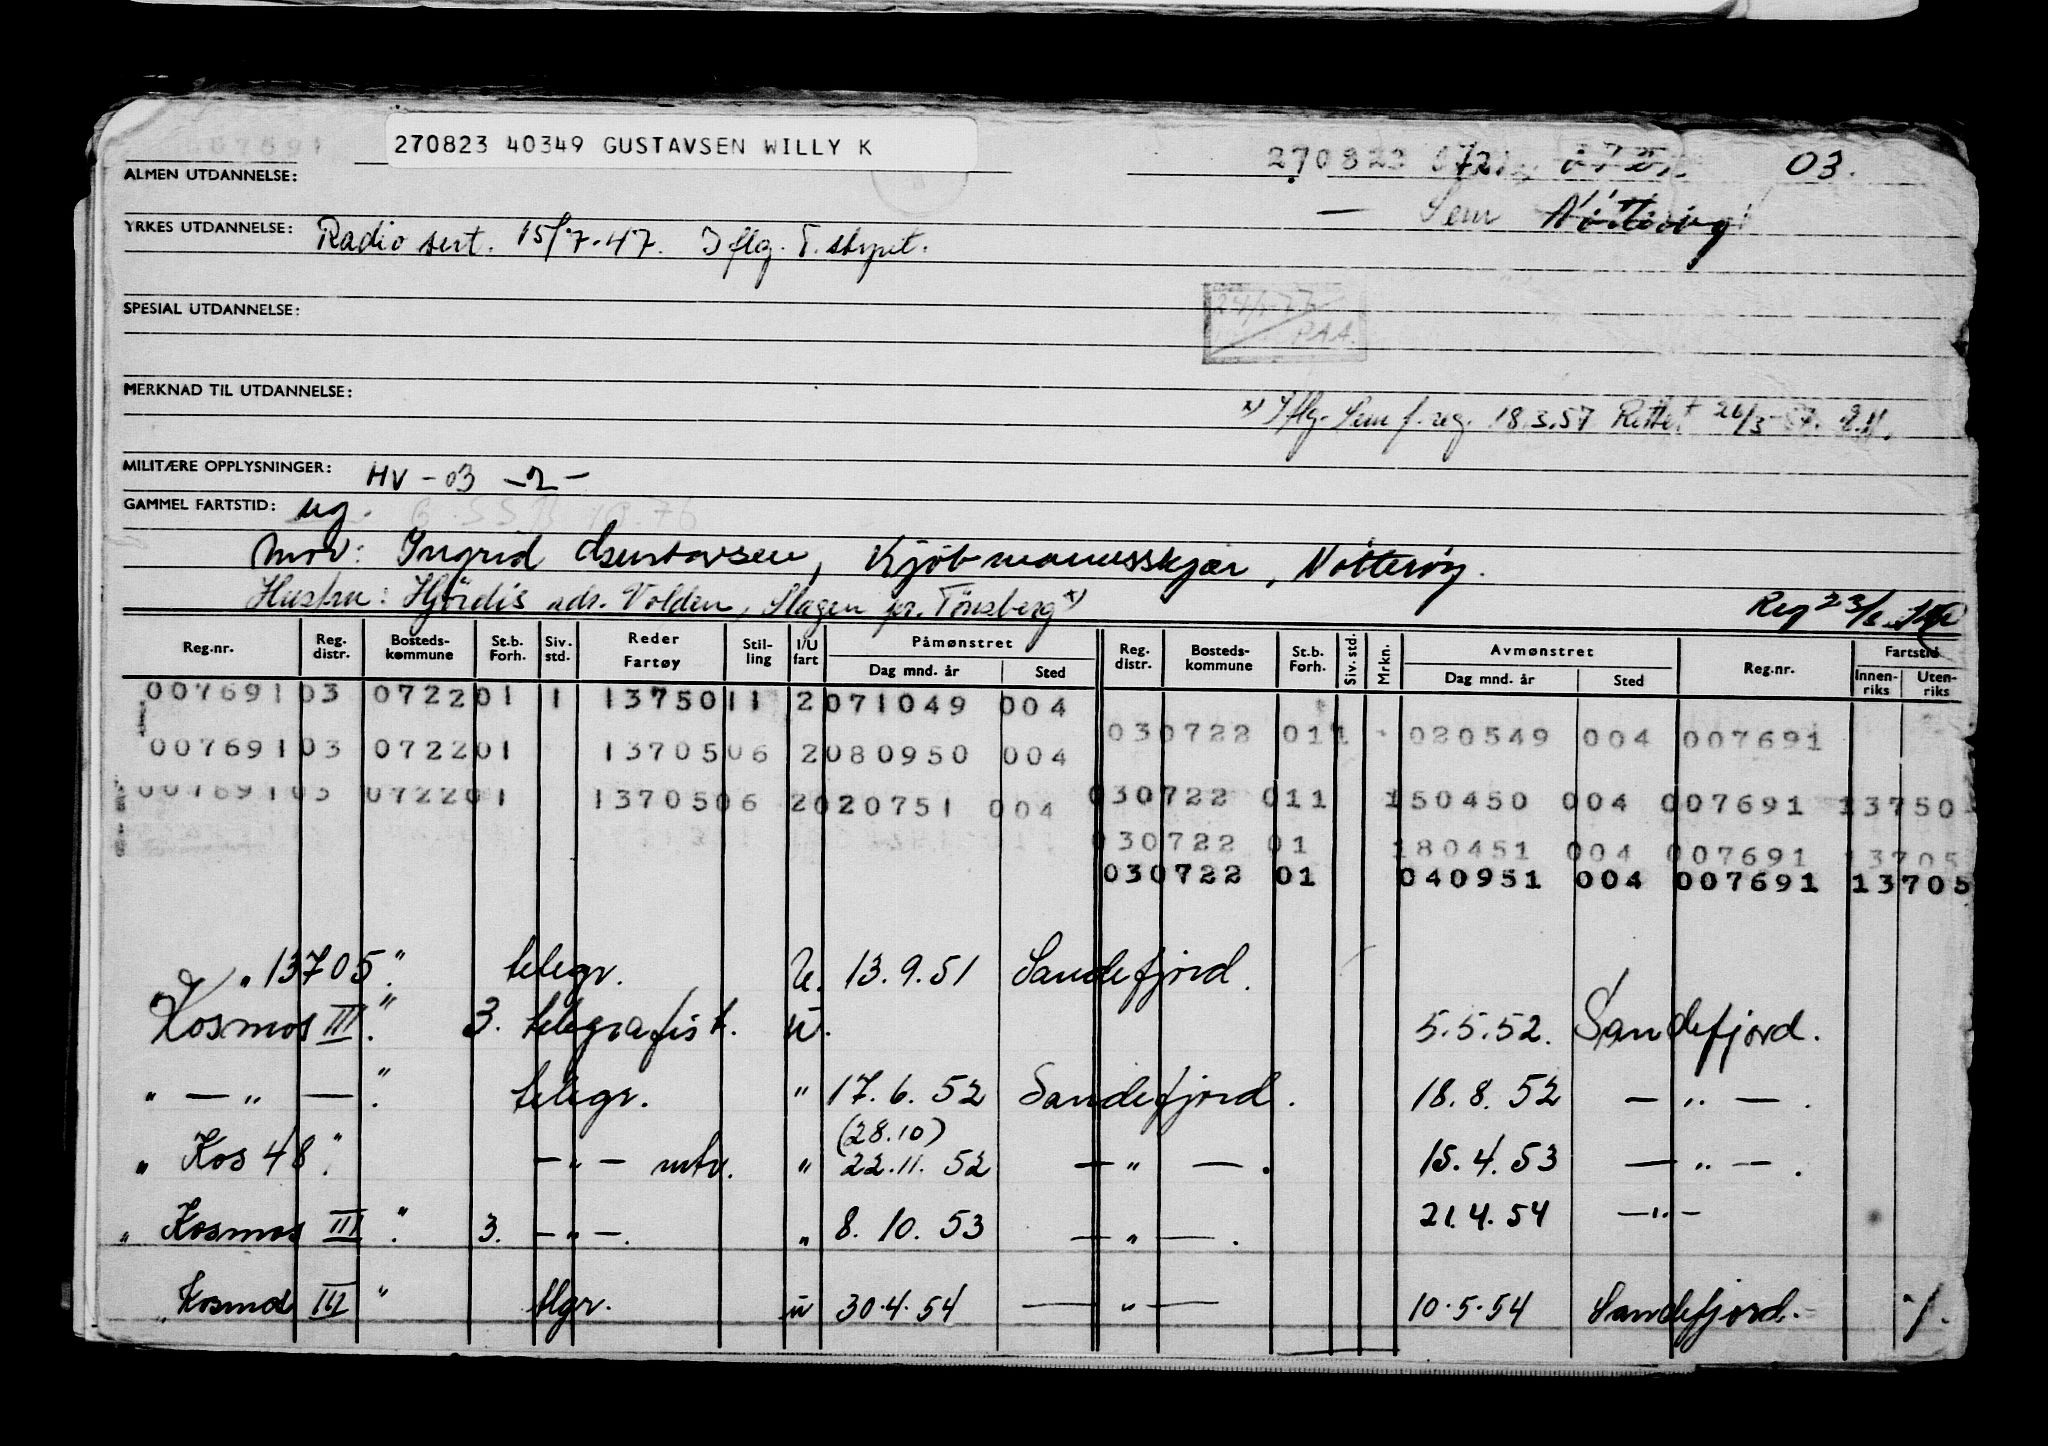 270823 40349 GUSTAVSEN WILLY K
007691
270823 03.
ALMEN UTDANNELSE:
Sem Nötteröy
YRKES UTDANNELSE: Radio sert. 15/7-47. Iflg. T. skjret.
SPESIAL UTDANNELSE:
PAA.
MERKNAD TIL UTDANNELSE:
x) Iflg. Sem f. reg. 18.3.57 Rettet 26/3-57.
MILITÆRE OPPLYSNINGER: HV - 03 -2-
GAMMEL FARTSTID: ug.
Mor: Ingrid Gustavsen, Kjöbmannsskjær, Nötteröy.
Hustru: Hjördis adr. Volden, Slagen pr. Tönsberg x)
Reg 23/
Reg.nr. Reg. distr. Bosteds- kommune St.b. Forh. Siv. std. Reder Fartøy Stil- ling I/U fart Påmønstret Dag mnd. år Sted Reg. distr. Bosteds- kommune St.b. Forh. Siv. std. Mrkn. Avmønstret Dag mnd. år Sted Reg.nr. Fartstid Innen- riks Uten- riks
007691 03 0722 01 1 13750 11 2 071049 004
030722 011 020549 004 007691
007691 03 0722 01 13705 06 2 080950 004
007691 03 0722 01 13705 06 2 020751 004 030722 011 150450 004 007691 13750
030722 01 180451 004 007691 13705
030722 01 040951 004 007691 13705
" 13705 " telegr. U. 13.9.51 Sandefjord.
Kosmos III " 3. telegrafist. u. 5.5.52. Sandefjord.
" — " — " telegr. " 17.6.52 Sandefjord. 18.8.52 — " — .
(28.10)
" Kos 48 " — " — mtv. " 22.11.52 — " — . 15.4.53 — " — .
" Kosmos III " 3. — " — . " 8.10.53 — " — . 21.4.54 — " —
" Kosmos III " tlgr. u 30.4.54 — " — 10.5.54 Sandefjord. /.